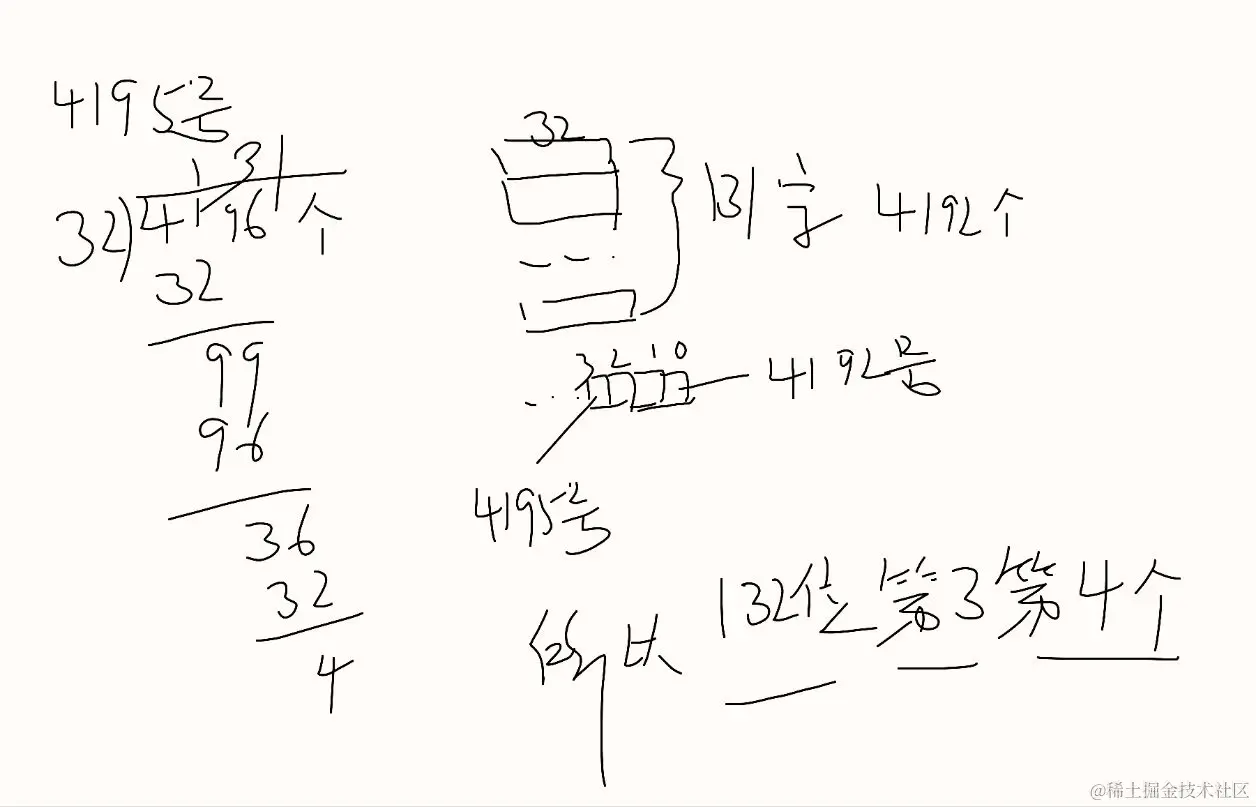 4195号
131
32)4196个
32
99
96
36
32
4
32
131字 4192个
3 2 1 0
4192号
4195号
所以 132位 第3 第4个
@稀土掘金技术社区